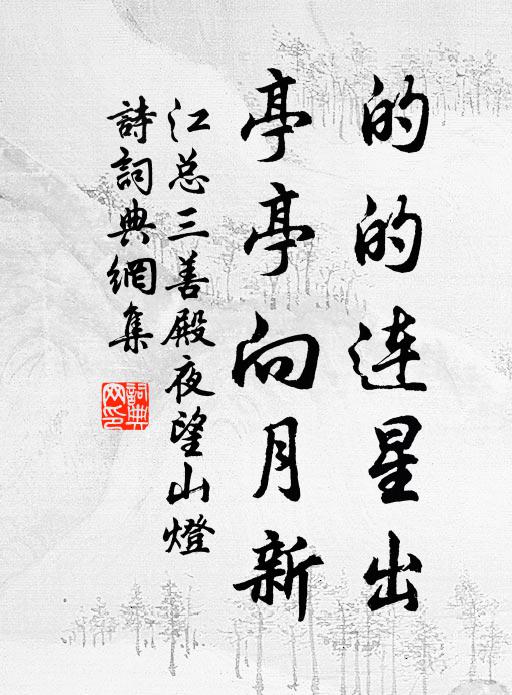 的的连星出
亭亭向月新
江总三善殿夜望山燈
詩詞典網集
詞典
网印